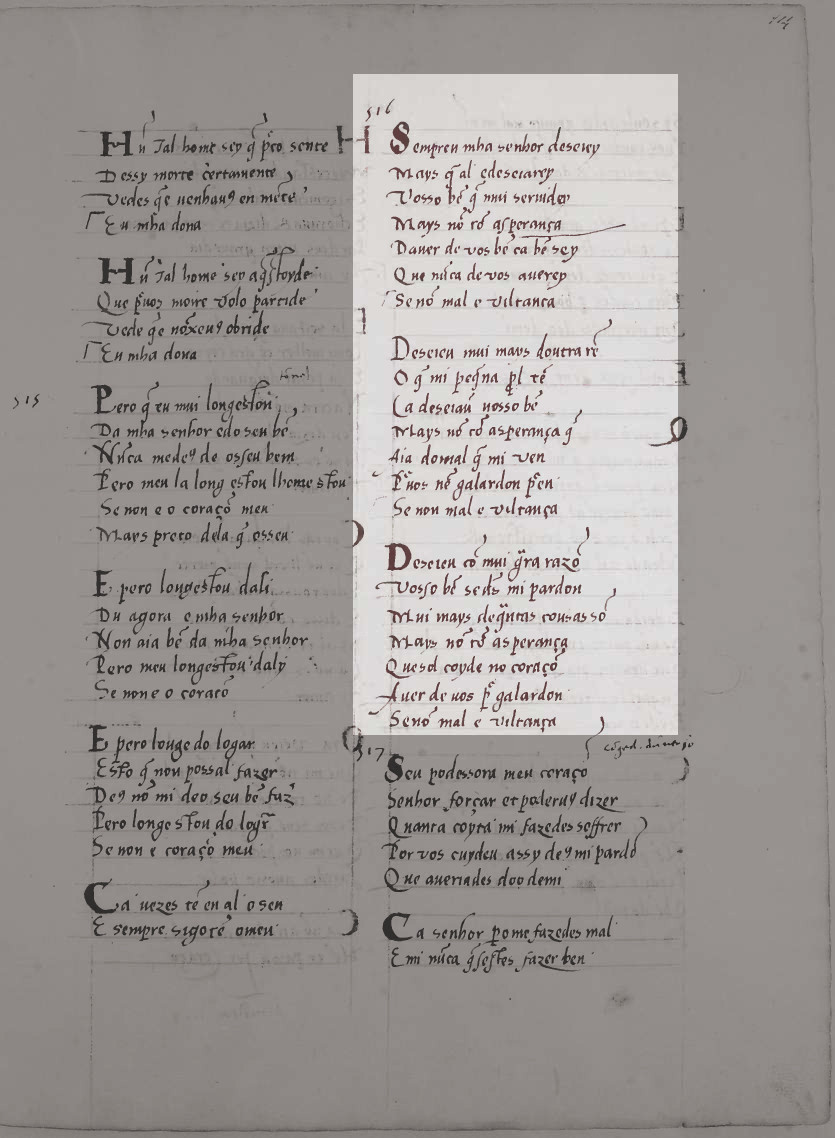 114
Hũ Tal home sey q̃ preto sente
Dessy morte çertamente
Vedes q̃e venhaus en mẽte
Eu mha dona
Hũ Tal home sey aq̃stoyde
Que moire volo partide
Vede q̃e nõxeus obride
Eu mha dona
tornel
515
Pero q̃ eu mui longestou
Da mha senhor edo seu bẽ
Nũca mede9 de osseu bem
Pero meu la long estou lhome stou
Se non e o coraçõ meu
Mays preto dela q̃ osseu
E pero longestou dali
Du agora e mha senhor
Non aia bẽ da mha senhor
Pero meu longestou daly
Se non e o coraçõ
E pero longe do logar
Esto q̃ non possal fazer
De9 nõ mi deo seu bẽ faz̃
Pero longe stou do logr̃
Se non e coraçõ meu
Ca vezes tẽ en al o sen
E sempre sigotẽ omeu
516
Sempreu mha senhor deseiey
Mays q̃ al edeseiarey
Vosso bẽ q̃ mui seruidey
Mays nõ cõ asperança
Dauer de vos bẽ ca bẽ sey
Que nũca de vos auerey
Se nõ mal e viltança
Deseieu mui mays doutra rẽ
O q̃ mi peq̃na prol tẽ
Ca deseiau uosso bẽ
Mays nõ cõ asperança q̃
Aia do mal q̃ mi ven
Pr̃uos nẽ galardon pr̃en
Se non mal e viltança
Deseieu cõ mui gr̃a razõ
Vosso bẽ se ds̃ mi pardon
Mui mays deq̃ntas cousas sõ
Mays nõ cõ asperança
Que sol coyde no coraçõ
Auer de uos pr̃ galardon
Se nõ mal e viltança
517
Seu podessora meu coraçõ
Senhor forçar et poderu9 dizer
Quanta coyta mi fazedes soffrer
Por vos cuydeu assy de9 mi pardõ
Que aueriades doo demi
Ca senhor pome fazedes mal
E mi nũca q̃sestes fazer ben